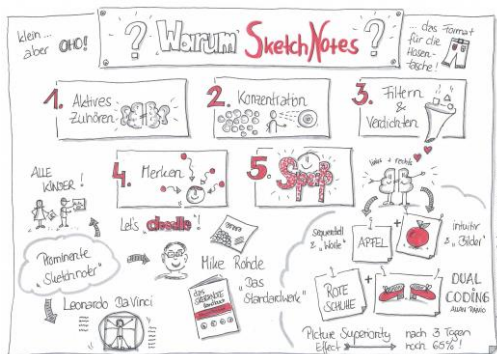 klein...
aber OHO!
? Warum SketchNotes ?
...das Format
für die
Hosen-
tasche!
1. Aktives
Zuhören
2. Konzentration
3. Filtern
&
Verdichten
4. Merken
5. Spaß
ALLE
KINDER!
Let's "doodle"!
Prominente
"Sketchnoter"
Leonardo Da Vinci
Mike Rohde
"Das
Standardwerk"
das
Sketchnote
Handbuch
links + rechts
sequentiell
& "Worte"
APFEL
+
intuitiv
& "Bilder"
ROTE
SCHUHE
+
DUAL
CODING
ALLAN PAIVIO
Picture Superiority
Effect
nach 3 Tagen
noch 65%!